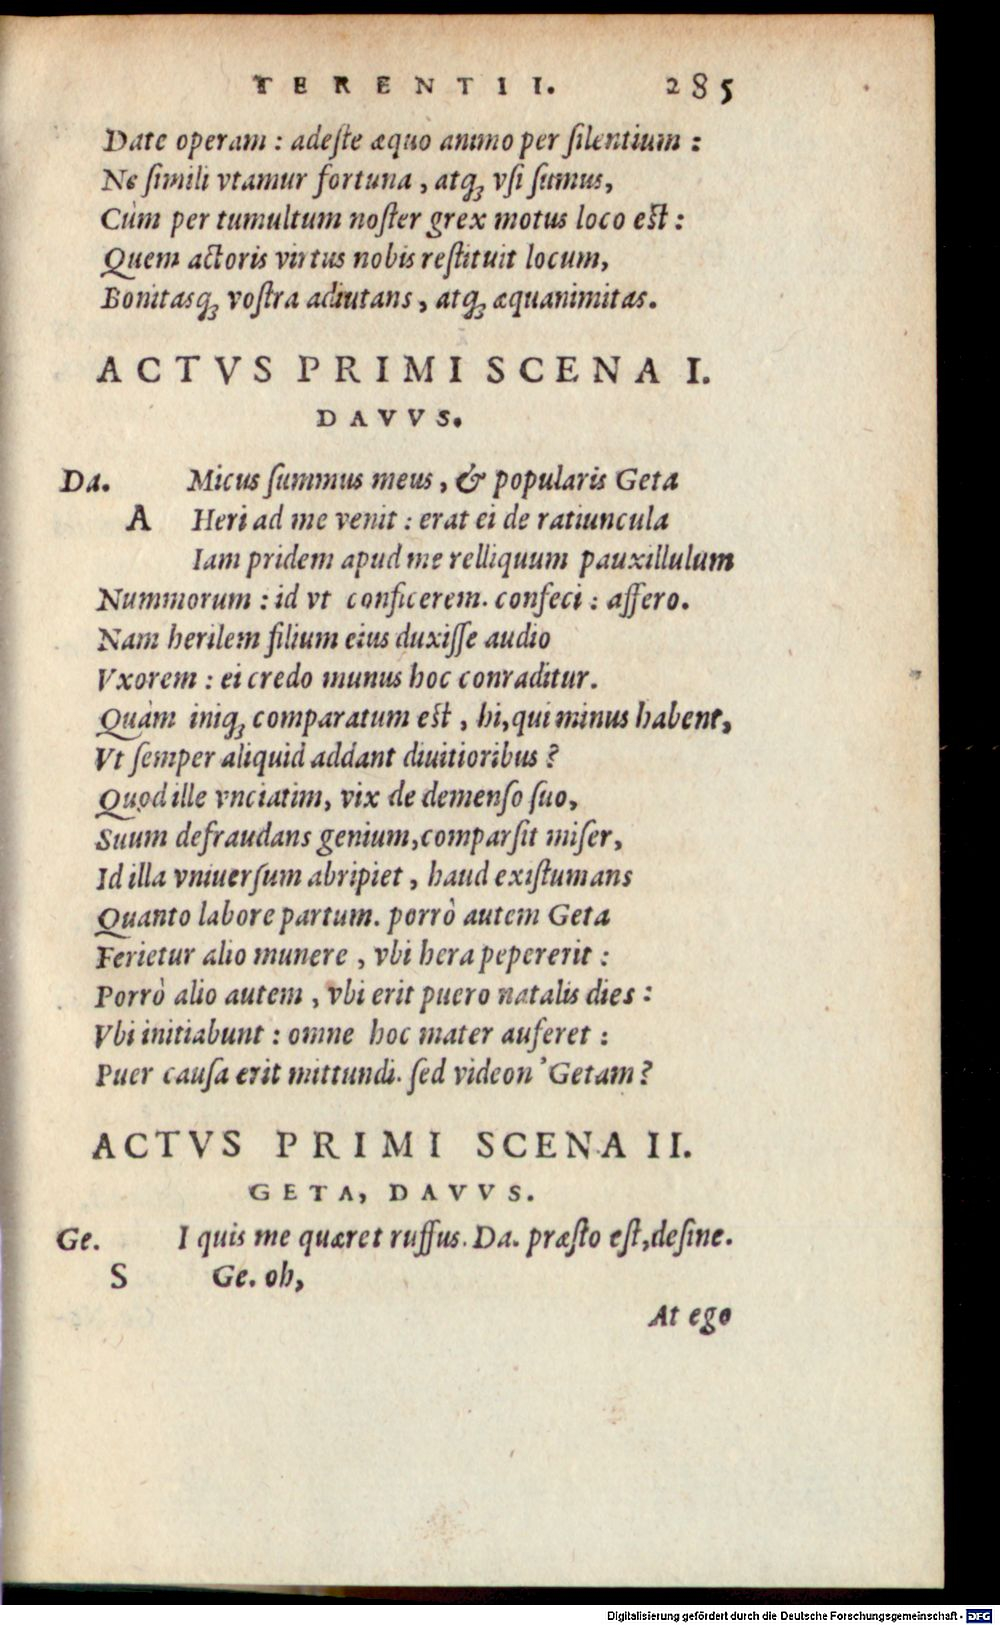 TERENTII. 285
Date operam : adeſte æquo animo per ſilentium :
Ne ſimili vtamur fortuna , atq; vſi ſumus,
Cùm per tumultum noſter grex motus loco eſt :
Quem actoris virtus nobis reſtituit locum,
Bonitasq; voſtra adiutans , atq; æquanimitas.
ACTVS PRIMI SCENA I.
DAVVS.
Da. Micus ſummus meus , & popularis Geta
A Heri ad me venit : erat ei de ratiuncula
Iam pridem apud me relliquum pauxillulum
Nummorum : id vt conficerem. confeci : affero.
Nam herilem filium eius duxiſſe audio
Vxorem : ei credo munus hoc conraditur.
Quàm iniq; comparatum eſt , hi, qui minus habent,
Vt ſemper aliquid addant diuitioribus ?
Quod ille vnciatim, vix de demenſo ſuo,
Suum defraudans genium, comparſit miſer,
Id illa vniuerſum abripiet , haud exiſtumans
Quanto labore partum. porrò autem Geta
Ferietur alio munere , vbi hera pepererit :
Porrò alio autem , vbi erit puero natalis dies :
Vbi initiabunt : omne hoc mater auferet :
Puer cauſa erit mittundi. ſed videon' Getam ?
ACTVS PRIMI SCENA II.
GETA, DAVVS.
Ge. I quis me quæret ruffus. Da. præſto eſt, deſine.
S Ge. oh,
At ego
Digitalisierung gefördert durch die Deutsche Forschungsgemeinschaft - DFG